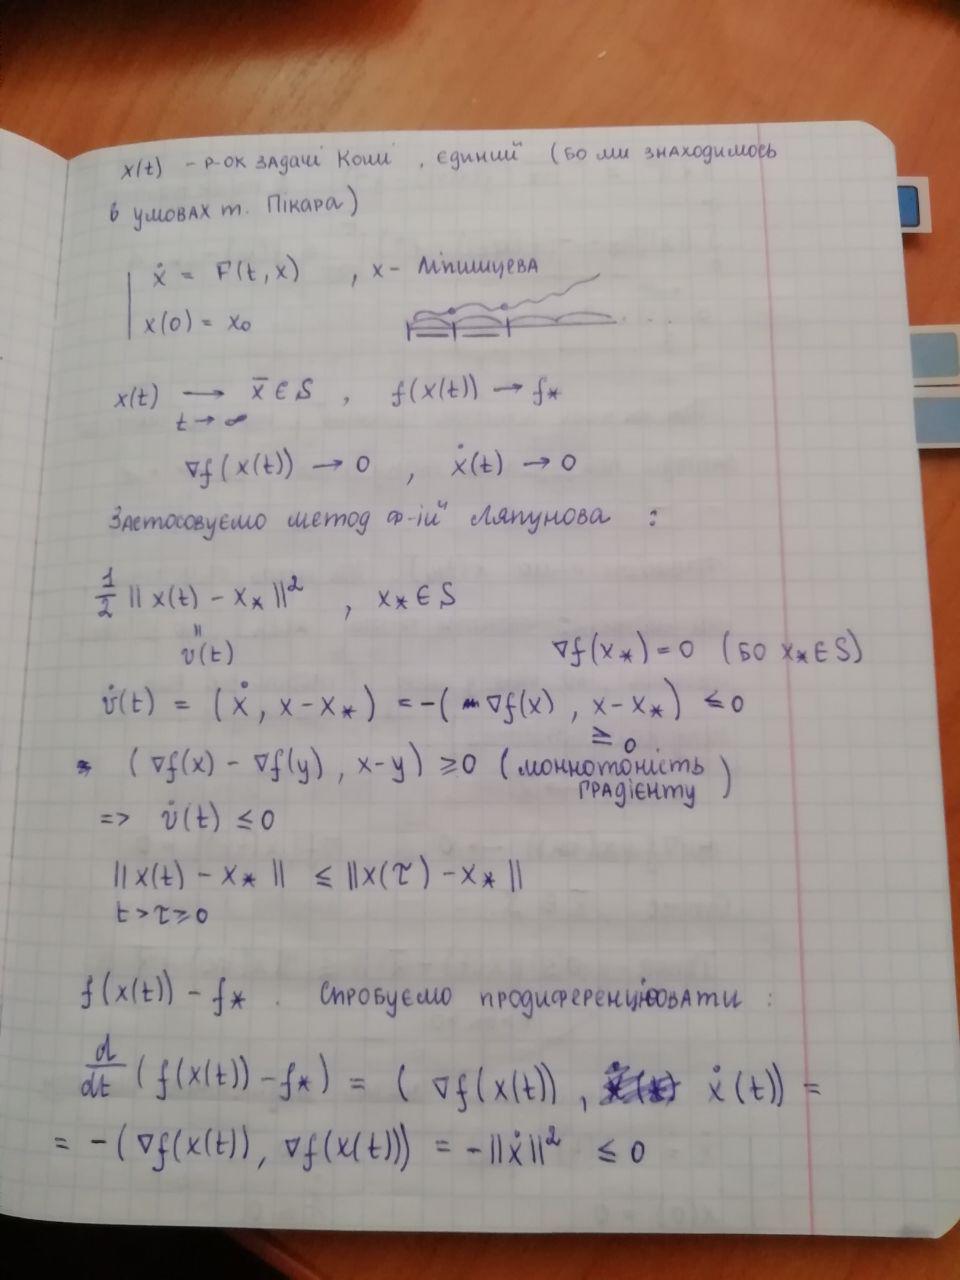 x(t) - р-ок задачі Коші, єдиний (бо ми знаходимось
в умовах т. Пікара)
ẋ = F(t, x) , x - Ліпишцева
x(0) = x₀
x(t) ⟶ x̄ ∈ S , f(x(t)) → f*
t → ∞
∇f(x(t)) → 0 , ẋ(t) → 0
Застосовуємо метод ф-ій Ляпунова :
1/2 || x(t) - x* ||² , x* ∈ S
||
v(t) ∇f(x*) = 0 (бо x* ∈ S)
v̇(t) = (ẋ, x - x*) = -(∇f(x), x - x*) ≤ 0
≥ 0
(∇f(x) - ∇f(y), x - y) ≥ 0 (моннотоність
градієнту)
=> v̇(t) ≤ 0
|| x(t) - x* || ≤ || x(τ) - x* ||
t > τ ≥ 0
f(x(t)) - f* . Спробуємо продиференціювати :
d/dt (f(x(t)) - f*) = (∇f(x(t)), ẋ(t)) =
= -(∇f(x(t)), ∇f(x(t))) = -||ẋ||² ≤ 0